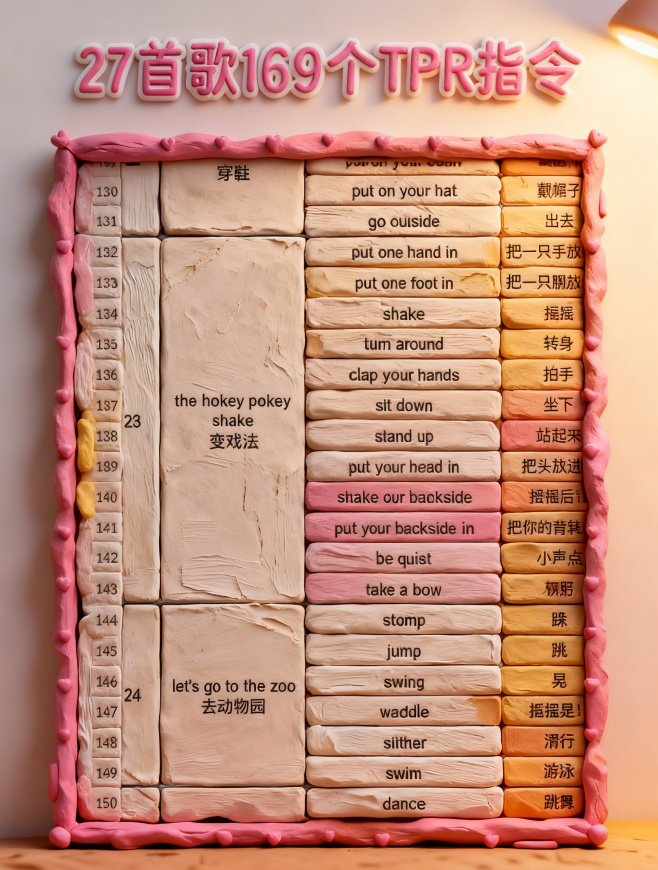 27首歌169个TPR指令
穿鞋
130 put on your hat 戴帽子
131 go ouiside 出去
132 put one hand in 把一只手放
133 put one foot in 把一只脚放
134 shake 摇摇
135 tum around 转身
136 clap your hands 拍手
137 sit down 坐下
23
the hokey pokey
shake
变戏法
138 stand up 站起来
189 put your head in 把头放进
140 shake our baokside 摇摇后
141 put your backside in 把你的背转
142 be quist 小声点
143 take a bow
144 stomp 跺
145 jump 跳
24
let's go to the zoo
去动物园
146 swing 晃
147 waddle 摇摇是
148 siither 滑行
149 swim 游泳
150 dance 跳舞